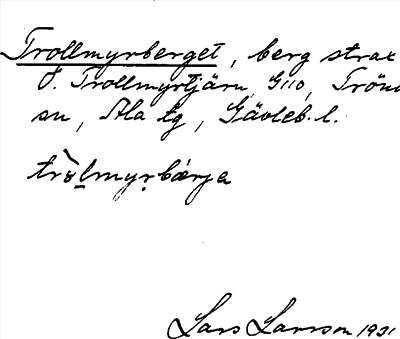 Trollmyrberget, berg strax
ö. Trollmyrtjärn, G110, Trönö
sn, Ala tg, Gävleb. l.
trò̱lmyṛbærja
Lars Larsson 1931